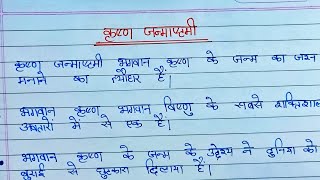 कृष्ण जन्माष्टमी
कृष्ण जन्माष्टमी भगवान कृष्ण के जन्म का जश्न
मनाने का त्यौहार है।
भगवान कृष्ण भगवान विष्णु के सबसे शक्तिशाली
अवतारो में से एक है।
भगवान कृष्ण के जन्म के उद्देश्य ने दुनिया को
बुराई से छुटकारा दिलाया है।